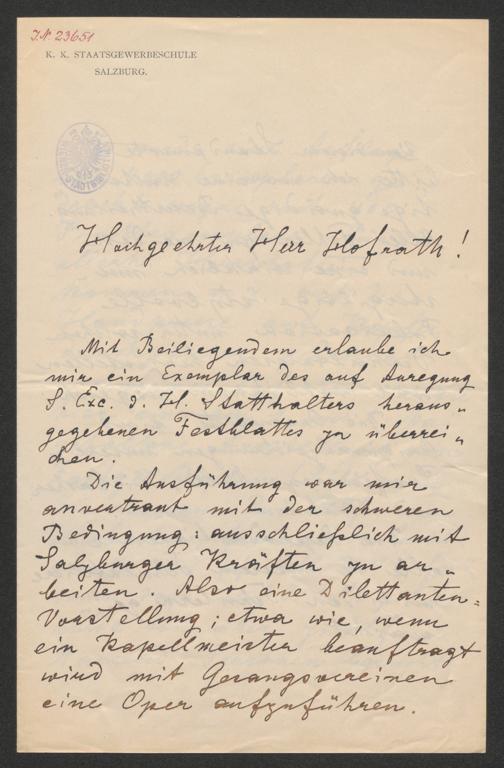 J.N. 23651
K. K. STAATSGEWERBESCHULE
SALZBURG.
Hochgeehrter Herr Hofrath!
Mit Beiliegendem erlaube ich
mir ein Exemplar des auf Anregung
S. Exc. d. H. Statthalters heraus„
gegebenen Festblattes zu überrei„
chen.
Die Ausführung war mir
anvertraut mit der schweren
Bedingung: ausschließlich mit
Salzburger Kräften zu ar„
beiten. Also eine Dilettanten=
Vorstellung; etwa wie, wenn
ein Kapellmeister beauftragt
wird mit Gesangsvereinen
eine Oper aufzuführen.